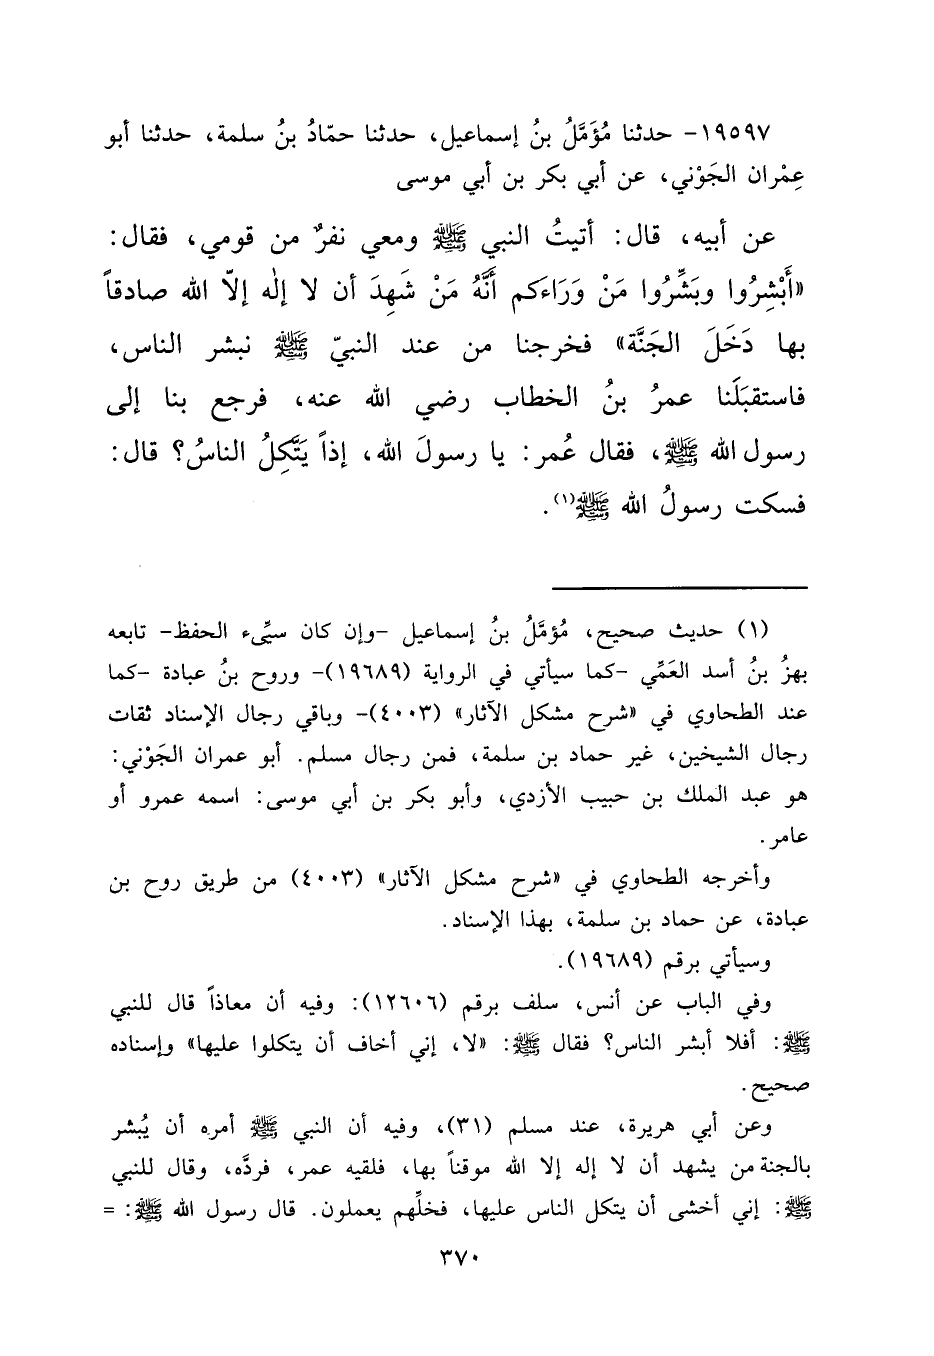 ١٩٥٩٧- حدثنا مُؤَمَّلُ بنُ إسماعيل، حدثنا حمّادُ بنُ سلمة، حدثنا أبو
عِمْران الجَوْني، عن أبي بكر بن أبي موسى
عن أبيه، قال: أتيتُ النبي ﷺ ومعي نفرٌ من قومي، فقال:
«أَبْشِرُوا وبَشِّرُوا مَنْ وَرَاءَكم أَنَّهُ مَنْ شَهِدَ أن لا إلٰه إلاّ الله صادقاً
بها دَخَلَ الجَنَّة» فخرجنا من عند النبيّ ﷺ نبشر الناس،
فاستقبَلَنا عمرُ بنُ الخطاب رضي الله عنه، فرجع بنا إلى
رسول الله ﷺ، فقال عُمر: يا رسولَ الله، إذاً يَتَّكِلُ الناسُ؟ قال:
فسكت رسولُ الله ﷺ(١).
(١) حديث صحيح، مُؤمَّلُ بنُ إسماعيل -وإن كان سيِّىء الحفظ- تابعه
بهزُ بنُ أسد العَمِّي -كما سيأتي في الرواية (١٩٦٨٩)- وروح بنُ عبادة -كما
عند الطحاوي في «شرح مشكل الآثار» (٤٠٠٣)- وباقي رجال الإسناد ثقات
رجال الشيخين، غير حماد بن سلمة، فمن رجال مسلم. أبو عمران الجَوْني:
هو عبد الملك بن حبيب الأزدي، وأبو بكر بن أبي موسى: اسمه عمرو أو
عامر.
وأخرجه الطحاوي في «شرح مشكل الآثار» (٤٠٠٣) من طريق روح بن
عبادة، عن حماد بن سلمة، بهذا الإسناد.
وسيأتي برقم (١٩٦٨٩).
وفي الباب عن أنس، سلف برقم (١٢٦٠٦): وفيه أن معاذاً قال للنبي
ﷺ: أفلا أبشر الناس؟ فقال ﷺ: «لا، إني أخاف أن يتكلوا عليها» وإسناده
صحيح.
وعن أبي هريرة، عند مسلم (٣١)، وفيه أن النبي ﷺ أمره أن يُبشر
بالجنة من يشهد أن لا إله إلا الله موقناً بها، فلقيه عمر، فردَّه، وقال للنبي
ﷺ: إني أخشى أن يتكل الناس عليها، فخلِّهم يعملون. قال رسول الله ﷺ: =
٣٧٠